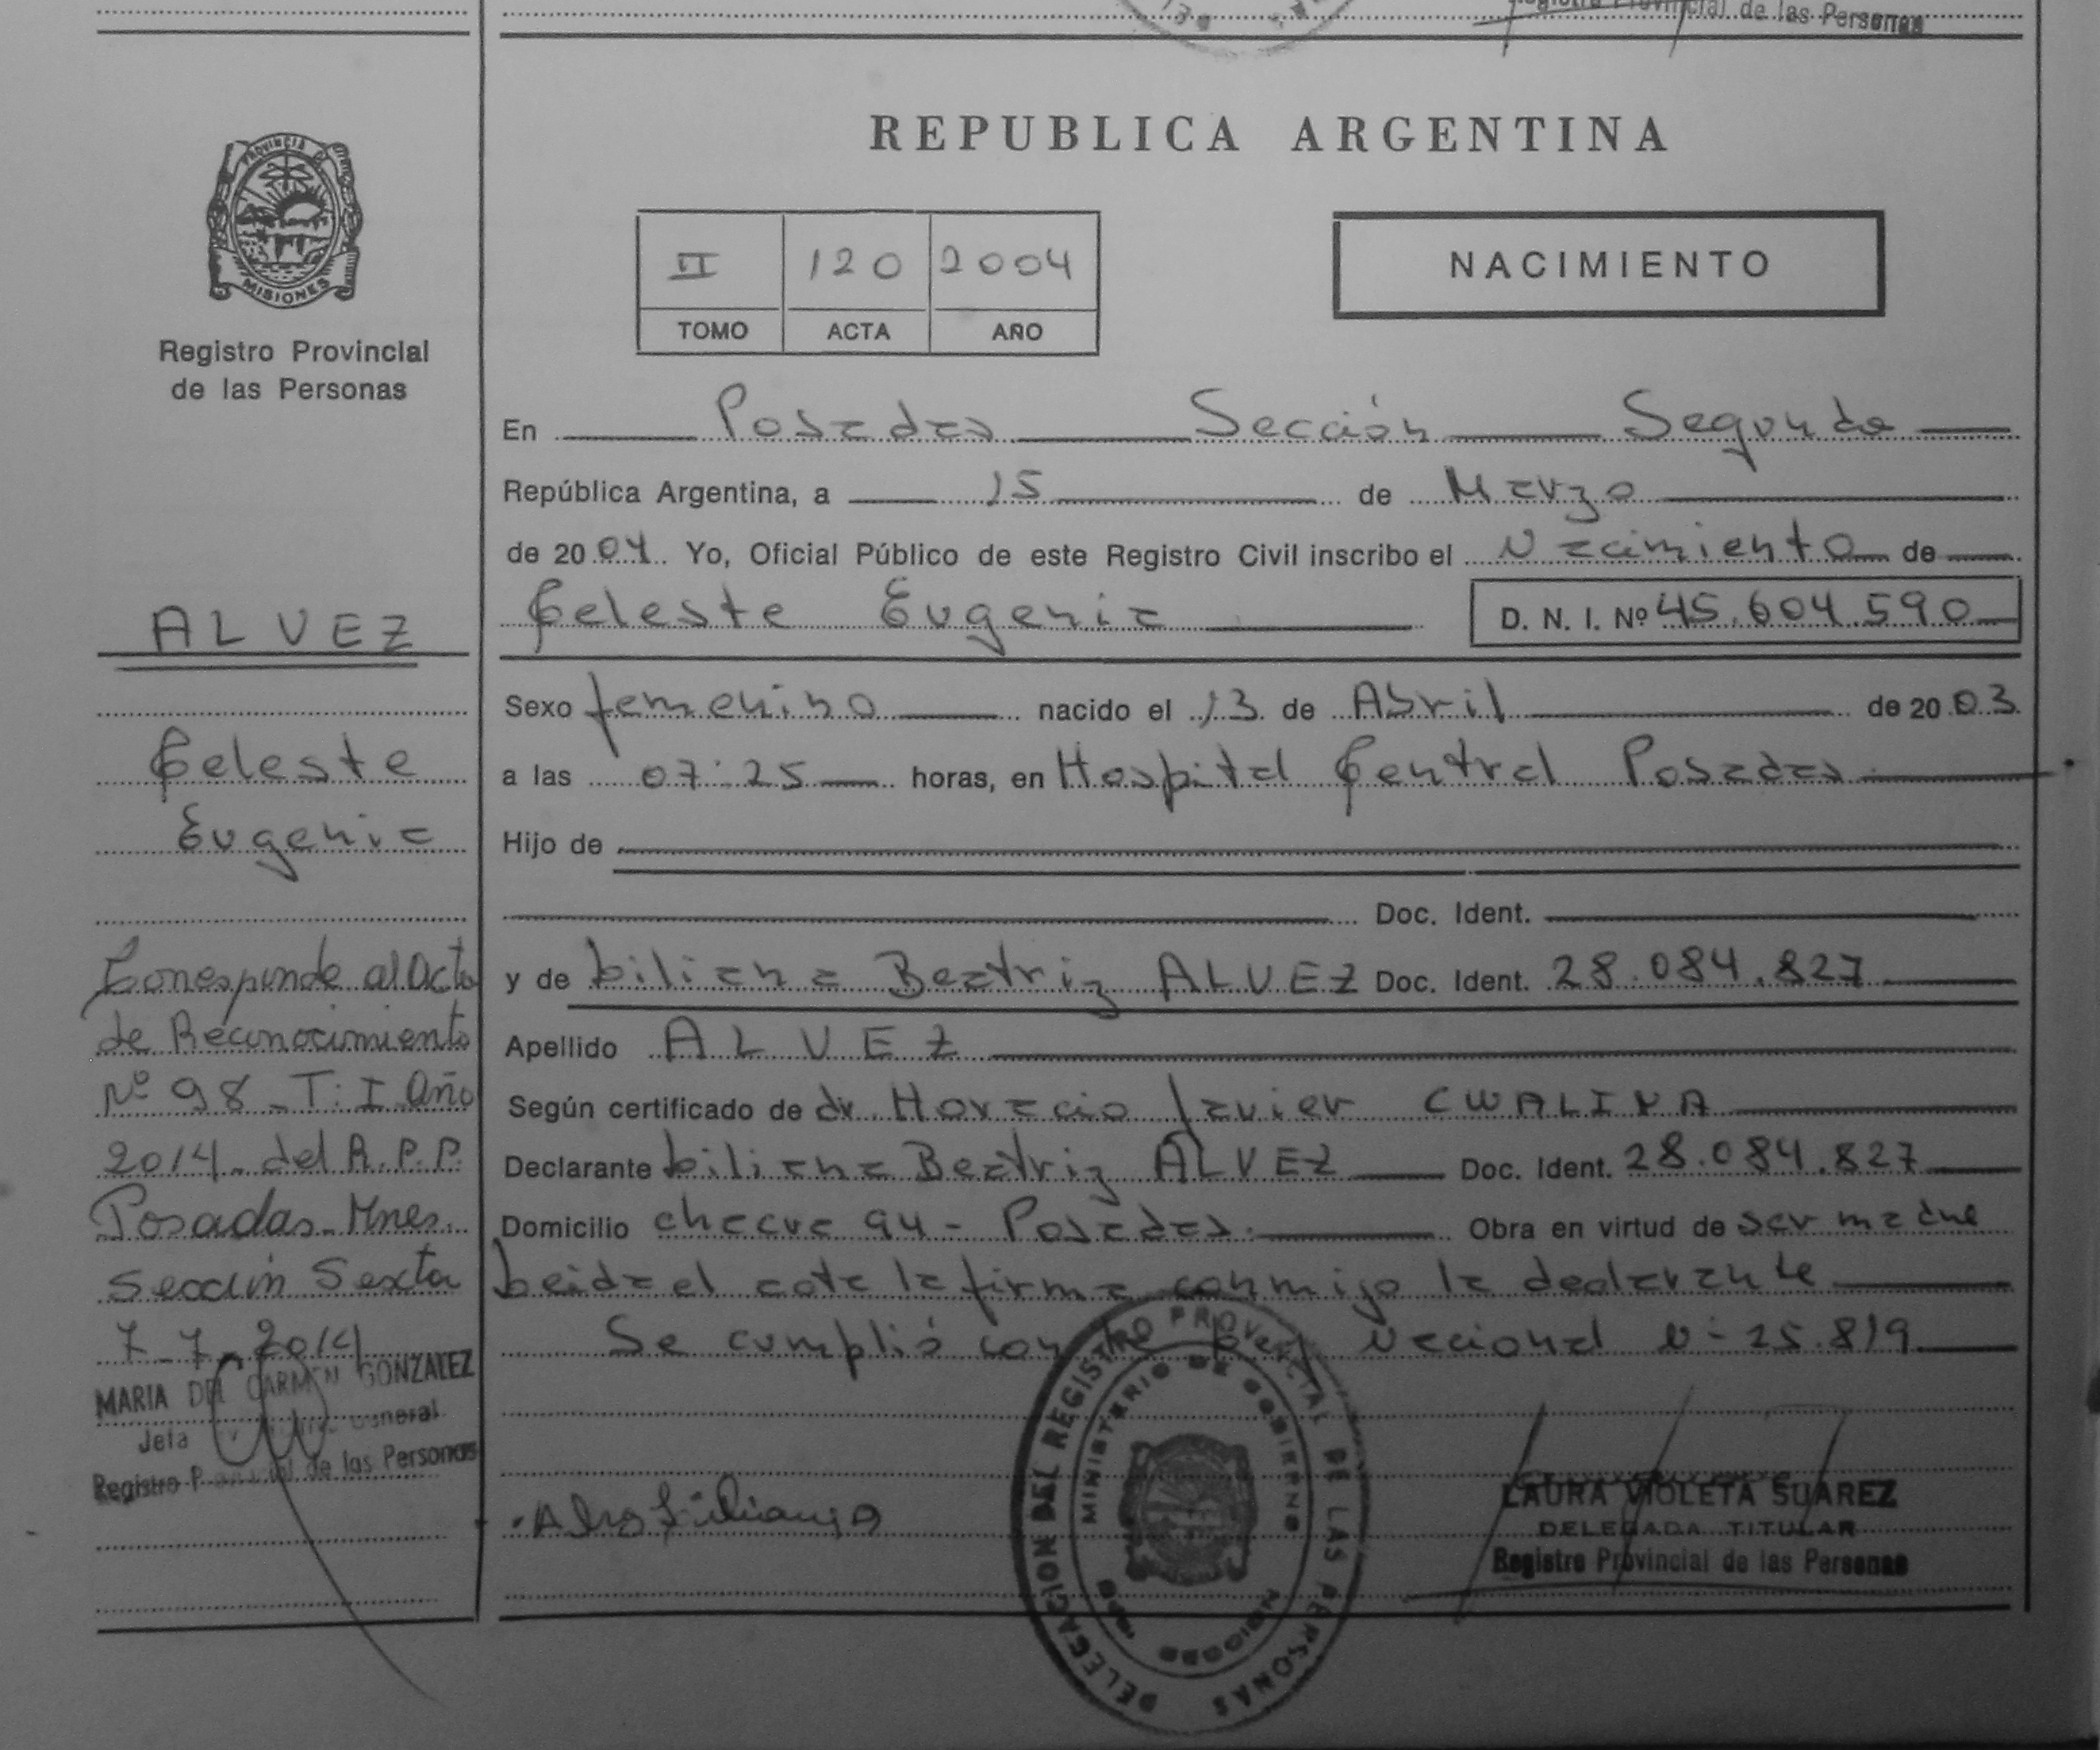 Registro Provincial de las Personas
PROVINCIA DE
MISIONES
Registro Provincial
de las Personas
ALVEZ
Celeste
Eugenia
Corresponde al Acta
de Reconocimiento
Nº 98 - T: I Año
2014 - del R.P.P.
Posadas - Mnes.
Sección Sexta
7-7-2014
MARIA DEL CARMEN GONZALEZ
General
Registro Provincial de las Personas
REPUBLICA ARGENTINA
II 120 2004
TOMO ACTA AÑO
NACIMIENTO
En Posadas Sección Segunda
República Argentina, a 15 de Marzo
de 2004 Yo, Oficial Público de este Registro Civil inscribo el Nacimiento de
Celeste Eugenia D. N. I. Nº 45.604.590
Sexo femenino nacido el 13 de Abril de 2003
a las 07:25 horas, en Hospital Central Posadas
Hijo de
Doc. Ident.
y de Liliana Beatriz ALVEZ Doc. Ident. 28.084.827
Apellido ALVEZ
Según certificado de dr. Horacio Javier CWALINA
Declarante Liliana Beatriz ALVEZ Doc. Ident. 28.084.827
Domicilio chacra 94 - Posadas. Obra en virtud de ser madre
Leida el acta la firma conmigo la declarante
Se cumplió con la Ley Nacional Nº 25.819
DELEGACION DEL REGISTRO PROVINCIAL DE LAS PERSONAS
MINISTERIO DE GOBIERNO
LAURA VIOLETA SUAREZ
DELEGADA TITULAR
Registro Provincial de las Personas